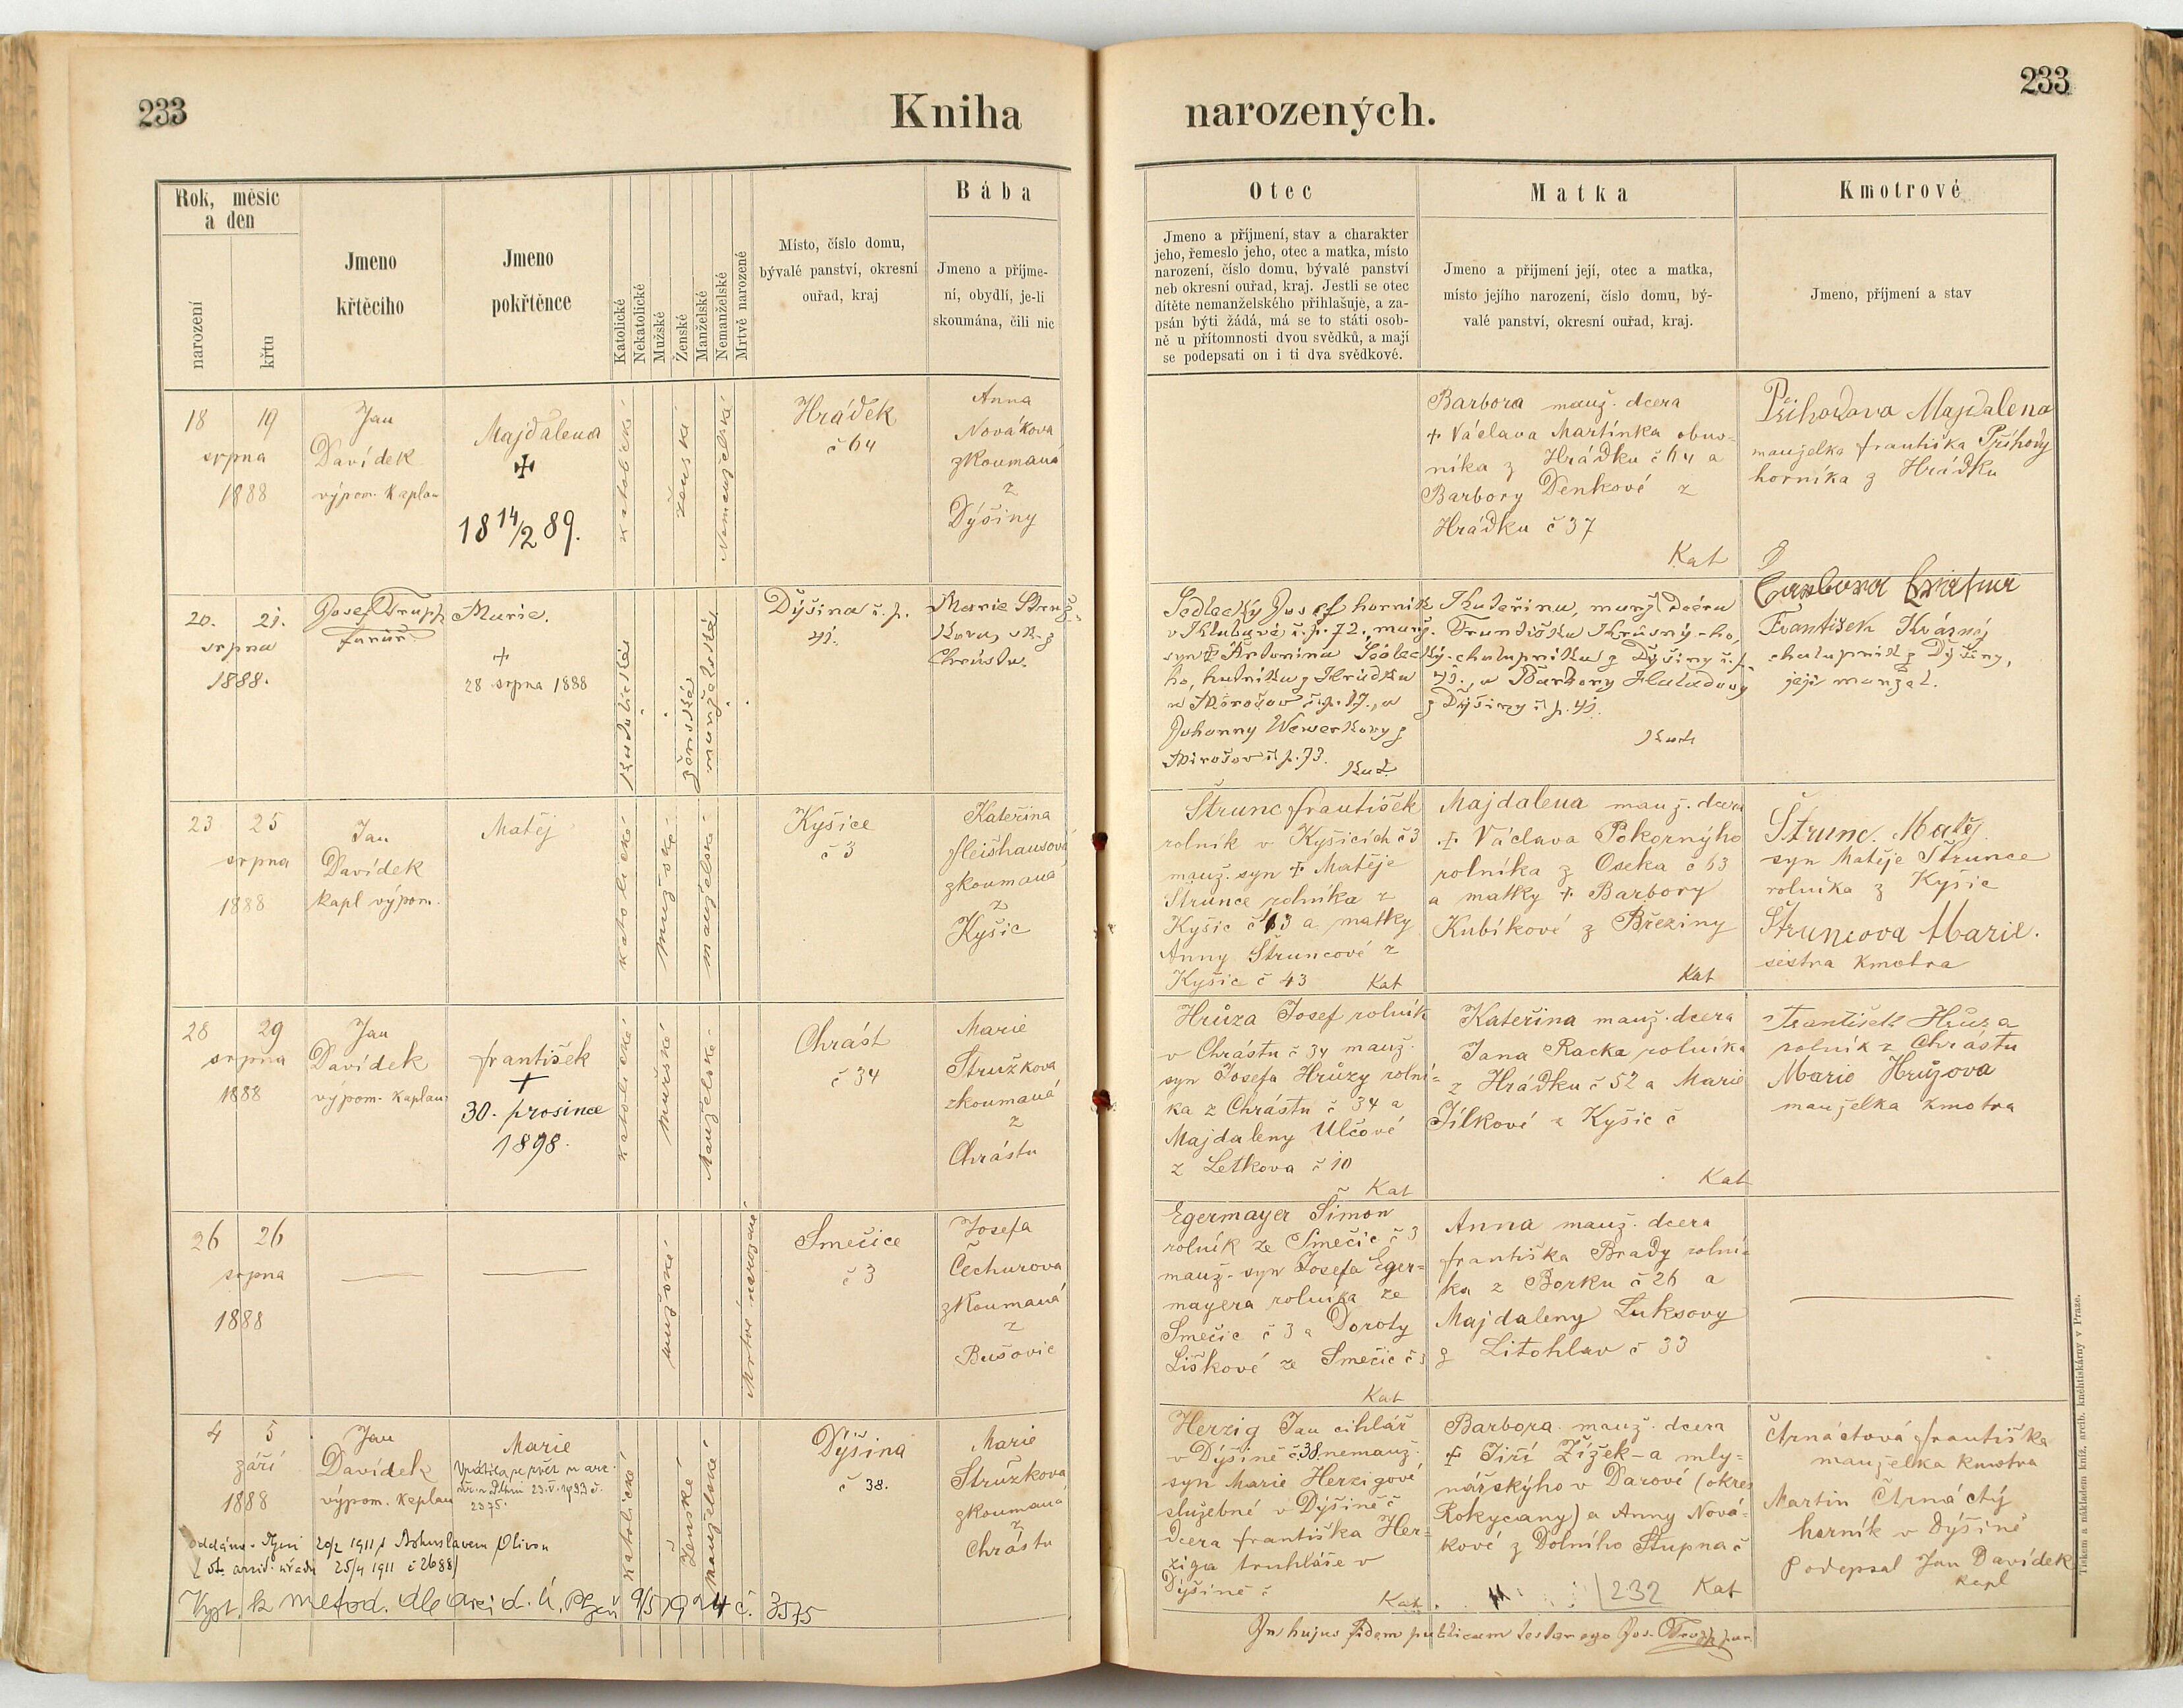 233
Kniha
narozených.
233
Rok, měsíc
a den
narození
křtu
Jmeno
křtěcího
Jmeno
pokřtěnce
Katolické
Nekatolické
Mužské
Ženské
Manželské
Nemanželské
Mrtvě narozené
Místo, číslo domu,
bývalé panství, okresní
ouřad, kraj
Bába
Jmeno a příjme-
ní, obydlí, je-li
skoumána, čili nic
Otec
Jmeno a příjmení, stav a charakter
jeho, řemeslo jeho, otec a matka, místo
narození, číslo domu, bývalé panství
neb okresní ouřad, kraj. Jestli se otec
dítěte nemanželského přihlašuje, a za-
psán býti žádá, má se to státi osob-
ně u přítomnosti dvou svědků, a mají
se podepsati on i ti dva svědkové.
Matka
Jmeno a příjmení její, otec a matka,
místo jejího narození, číslo domu, bý-
valé panství, okresní ouřad, kraj.
Kmotrové
Jmeno, příjmení a stav
18 19
srpna
1888
Jan
Davídek
výpom. Kaplan
Majdalena
✠
18 14/2 89.
katolické
ženské
Nemanželské
Hrádek
č 64
Anna
Nováková
zkoumaná
z
Dýšiny
Barbora manž. dcera
+ Václava Martínka obuv=
níka z Hrádku č 64 a
Barbory Denkové z
Hrádku č 37
Kat
Příhodova Majdalena
manželka františka Příhody
horníka z Hrádku
20. 21.
srpna
1888.
Josef Trupp
farář.
Marie.
+
28 srpna 1888
katolické
ženské
manželské
Dýšina č. p.
41.
Marie Struž-
kova, zk. z
Chrástu.
Sedlecký Josef horník
v Klabavě č. p. 72., manž.
syn Antonína Sedlecký-
ho, hutníka z Hrádku
u Mirošov č. p. 17., a
Johanny Wewerkovy z
Mirošov č. p. 73.
Kat.
Kateřina, manž. dcera
Františka Krásný-ho,
chalupníka z Dýšiny č. p.
41., a Barbory Haladovy
z Dýšiny č. p. 41.
Kath
Barbora
František Krásný
chalupník z Dýšiny,
její manžel.
23 25
srpna
1888
Jan
Davídek
kapl výpom.
Matěj
katolické
mužské
manželské
Kyšice
č 3
Kateřina
fleišhansová
zkoumaná
z
Kyšic
Štrunc františek
rolník v Kyšicích č 3
manž. syn + Matěje
Štrunce rolníka z
Kyšic č 13 a matky
Anny Štruncové z
Kyšic č 43 Kat
Majdalena manž. dcera
+ Václava Pokornýho
rolníka z Oseka č 63
a matky + Barbory
Kubíkové z Březiny
Kat
Štrunc. Matěj.
syn Matěje Štrunce
rolníka z Kyšic
Štruncova Marie.
sestra kmotra
28 29
srpna
1888
Jan
Davídek
výpom. Kaplan
františek
+
30. prosince
1898.
katolické
mužské
Manželské
Chrást
č 34
Marie
Stružkova
zkoumaná
z
Chrástu
Hrůza Josef rolník
v Chrástu č 34 manž.
syn Josefa Hrůzy rolní=
ka z Chrástu č 34 a
Majdaleny Ulčové
z Letkova č 10
Kat
Kateřina manž. dcera
Jana Racka rolníka
z Hrádku č 52 a Marie
Jílkové z Kyšic č
Kat
František Hrůza
rolník z Chrástu
Marie Hrůzova
manželka kmotra
26 26
srpna
1888
mužské
Mrtvě narozené
Smečice
č 3
Josefa
Čechurova
zkoumaná
z
Bušovic
Egermayer Šimon
rolník ze Smečic č 3
manž. syn Josefa Eger=
mayera rolníka ze
Smečic č 3 a Doroty
Liškové ze Smečic č 3
Kat
Anna manž. dcera
františka Brady rolní=
ka z Borku č 26 a
Majdaleny Luksovy
z Litohlav č 33
4 5
září
1888
Jan
Davídek
výpom. Kaplan
Marie
2375.
katolické
Ženské
manželské
Dýšina
č 38.
Marie
Stružkova
zkoumaná
z
Chrástu
Herzig Jan cihlář
v Dýšině č 38 nemanž.
syn Marie Herzigové
služebné v Dýšině č
dcera františka Her=
ziga truhláře v
Dýšině č
Kat.
Barbora manž. dcera
+ Jiří Žížek-a mly=
nářskýho v Darové (okres
Rokycany) a Anny Nová=
kové z Dolního Stupna č
232 Kat
Črnáctová františka
manželka kmotra
Martin Črnáctý
horník v Dýšině
Podepsal Jan Davídek
kapl
oddána 20/2 1911 s Bohuslavem Olivou
25/4 1911 č 2688)
9/5 1924 č. 3575
In hujus fidem publicam testor ego Jos. Trupp par.
Tiskem a nákladem kníž. arcib. knihtiskárny v Praze.